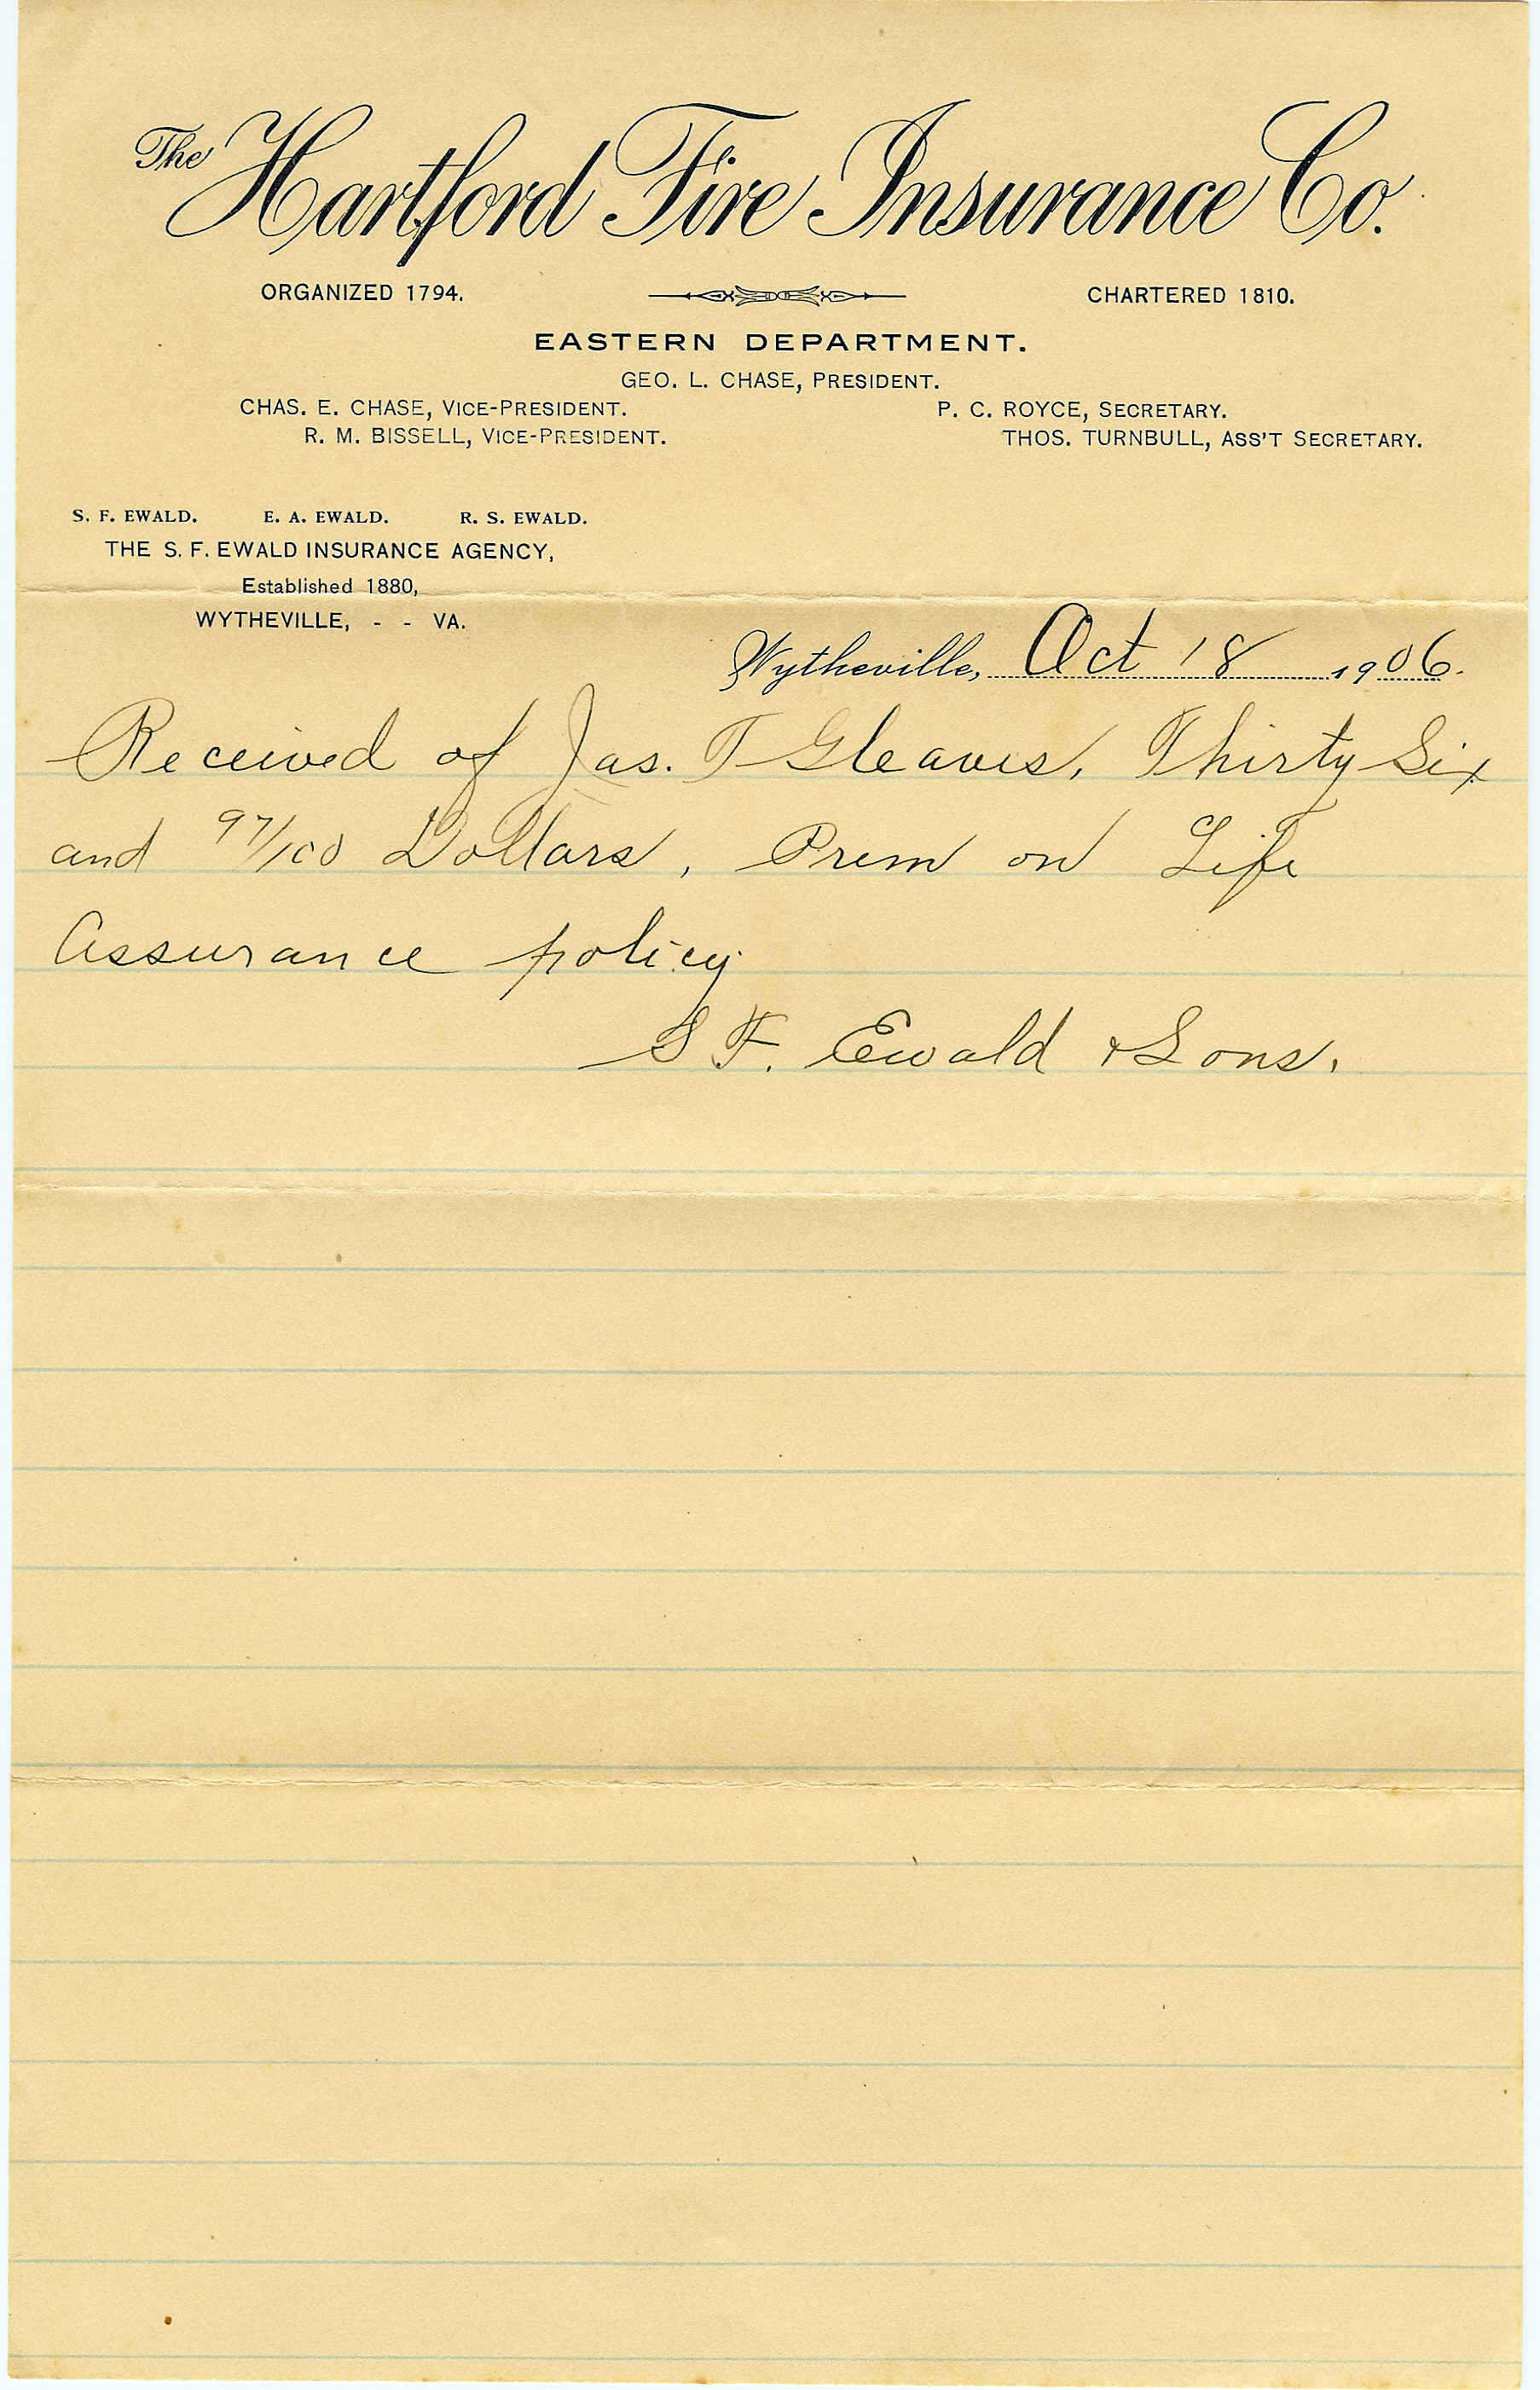 The Hartford Fire Insurance Co.
ORGANIZED 1794. CHARTERED 1810.
EASTERN DEPARTMENT.
GEO. L. CHASE, PRESIDENT.
CHAS. E. CHASE, VICE-PRESIDENT. P. C. ROYCE, SECRETARY.
R. M. BISSELL, VICE-PRESIDENT. THOS. TURNBULL, ASS'T SECRETARY.
S. F. EWALD. E. A. EWALD. R. S. EWALD.
THE S. F. EWALD INSURANCE AGENCY,
Established 1880,
WYTHEVILLE, - - VA.
Wytheville, Oct 18 1906.
Received of Jas. T Gleaves, Thirty Six
and 97/100 Dollars, Prem on Life
Assurance policy
S F. Ewald & Sons.